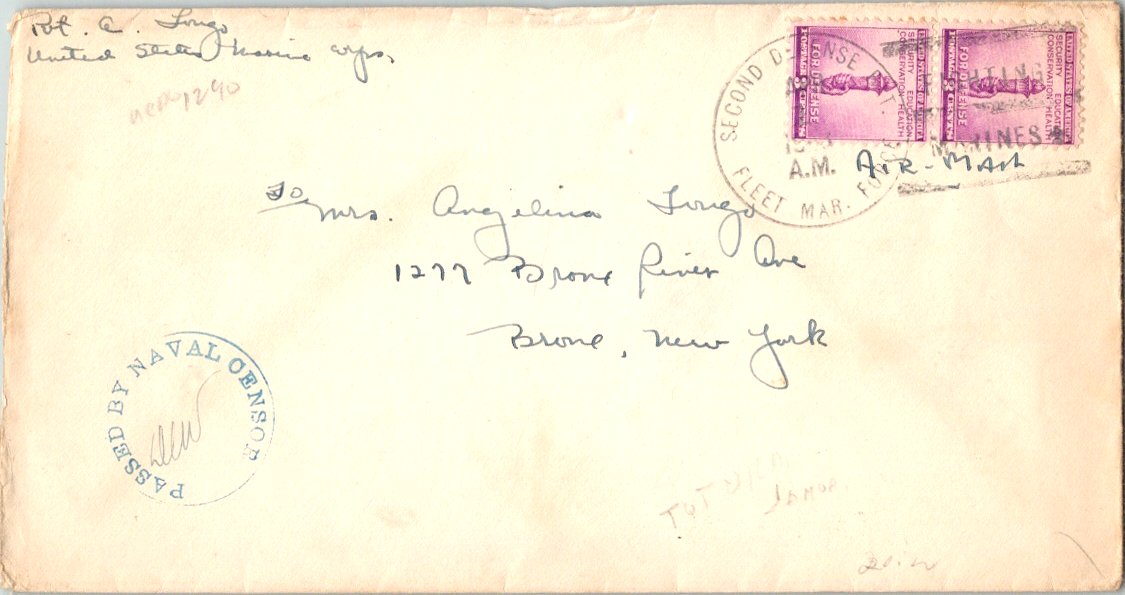 Pvt. A. Longo
United States Marine Corps.
1240
SECOND DEFENSE BAT.
FLEET MAR. FORCE
A.M.
FIGHTING
MARINES
UNITED STATES OF AMERICA
SECURITY EDUCATION
CONSERVATION HEALTH
FOR DEFENSE
POSTAGE 3 CENTS
UNITED STATES OF AMERICA
SECURITY EDUCATION
CONSERVATION HEALTH
FOR DEFENSE
POSTAGE 3 CENTS
AIR-MAIL
To
Mrs. Angelina Longo
1277 Bronx River Ave
Bronx, New York
PASSED BY NAVAL CENSOR